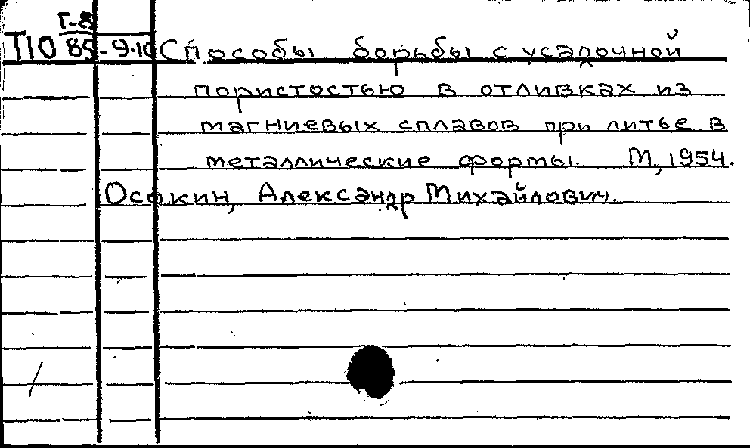 Г-8
П10 85-9.10 Способы борьбы с усадочной
пористостью в отливках из
магниевых сплавов при литье в
металлические формы. М, 1954.
Осокин, Александр Михайлович.